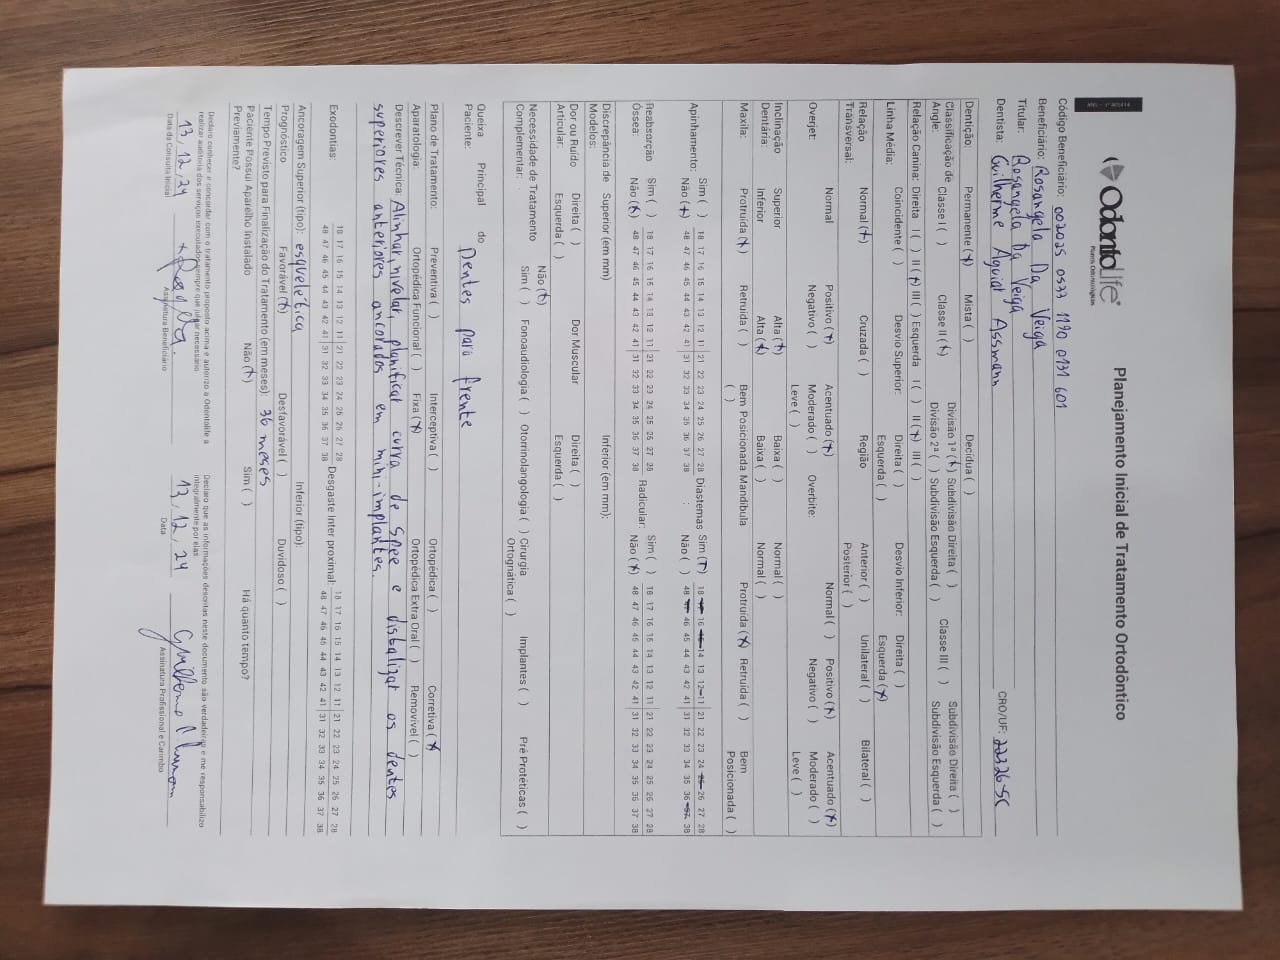 OdontoLife®
Planos Odontológicos
Planejamento Inicial de Tratamento Ortodôntico
Código Beneficiário: 002025 0533 1190 0131 601
Beneficiário: Rosangela Da Veiga
Titular: Rosangela Da Veiga
Dentista: Guilherme Aguiar Assmann CRO/UF: 22326-SC
Dentição: Permanente (x) Mista ( ) Decídua ( )
Classificação de Angle: Classe I ( ) Classe II (x) Divisão 1ª (x) Subdivisão Direita ( ) Classe III ( ) Subdivisão Direita ( )
Divisão 2ª ( ) Subdivisão Esquerda ( ) Subdivisão Esquerda ( )
Relação Canina: Direita I ( ) II (x) III ( ) Esquerda I ( ) II (x) III ( )
Linha Média: Coincidente ( ) Desvio Superior: Direita ( ) Desvio Inferior: Direita ( )
Esquerda ( ) Esquerda (x)
Relação Transversal: Normal (x) Cruzada ( ) Região Anterior ( ) Unilateral ( ) Bilateral ( )
Posterior ( )
Overjet: Normal Positivo (x) Acentuado (x) Overbite: Normal ( ) Positivo (x) Acentuado (x)
Negativo ( ) Moderado ( ) Negativo ( ) Moderado ( )
Leve ( ) Leve ( )
Inclinação Dentária: Superior Alta (x) Baixa ( ) Normal ( )
Inferior Alta (x) Baixa ( ) Normal ( )
Maxila: Protruída (x) Retruída ( ) Bem Posicionada ( ) Mandíbula Protruída (x) Retruída ( ) Bem Posicionada ( )
Apinhamento: Sim ( ) 18 17 16 15 14 13 12 11| 21 22 23 24 25 26 27 28 Diastemas Sim (x) 18 17 16 15 14 13 12 11| 21 22 23 24 25 26 27 28
Não (x) 48 47 46 45 44 43 42 41| 31 32 33 34 35 36 37 38 : Não ( ) 48 47 46 45 44 43 42 41| 31 32 33 34 35 36 37 38
Reabsorção Óssea: Sim ( ) 18 17 16 15 14 13 12 11| 21 22 23 24 25 26 27 28 Radicular: Sim ( ) 18 17 16 15 14 13 12 11| 21 22 23 24 25 26 27 28
Não (x) 48 47 46 45 44 43 42 41| 31 32 33 34 35 36 37 38 Não (x) 48 47 46 45 44 43 42 41| 31 32 33 34 35 36 37 38
Discrepância de Modelos: Superior (em mm) Inferior (em mm):
Dor ou Ruído Articular: Direita ( ) Dor Muscular Direita ( )
Esquerda ( ) Esquerda ( )
Necessidade de Tratamento Complementar: Não (x)
Sim ( ) Fonoaudiologia ( ) Otorrinolangologia ( ) Cirurgia Ortognática ( ) Implantes ( ) Pré Protéticas ( )
Queixa Principal do Paciente: Dentes para frente
Plano de Tratamento: Preventiva ( ) Interceptiva ( ) Ortopédica ( ) Corretiva (x)
Aparatologia: Ortopédica Funcional ( ) Fixa (x) Ortopédica Extra Oral ( ) Removível ( )
Descrever Técnica Alinhar, nivelar, planificar curva de Spee e distalizar os dentes
superiores anteriores ancorados em mini-implantes.
Exodontias: 18 17 16 15 14 13 12 11| 21 22 23 24 25 26 27 28 Desgaste Inter proximal: 18 17 16 15 14 13 12 11| 21 22 23 24 25 26 27 28
48 47 46 45 44 43 42 41| 31 32 33 34 35 36 37 38 48 47 46 45 44 43 42 41| 31 32 33 34 35 36 37 38
Ancoragem Superior (tipo): esquelética Inferior (tipo):
Prognóstico Favorável (x) Desfavorável ( ) Duvidoso ( )
Tempo Previsto para Finalização do Tratamento (em meses): 36 meses
Paciente Possui Aparelho Instalado Previamente? Não (x) Sim ( ) Há quanto tempo?
Declaro conhecer e concordar com o tratamento proposto acima e autorizo a Odontolife a
realizar auditoria dos serviços executados sempre que julgar necessário
Declaro que as informações descritas neste documento são verdadeiras e me responsabilizo
integralmente por elas
13, 12, 24
Data da Consulta Inicial Assinatura Beneficiário
13, 12, 24
Data Assinatura Profissional e Carimbo